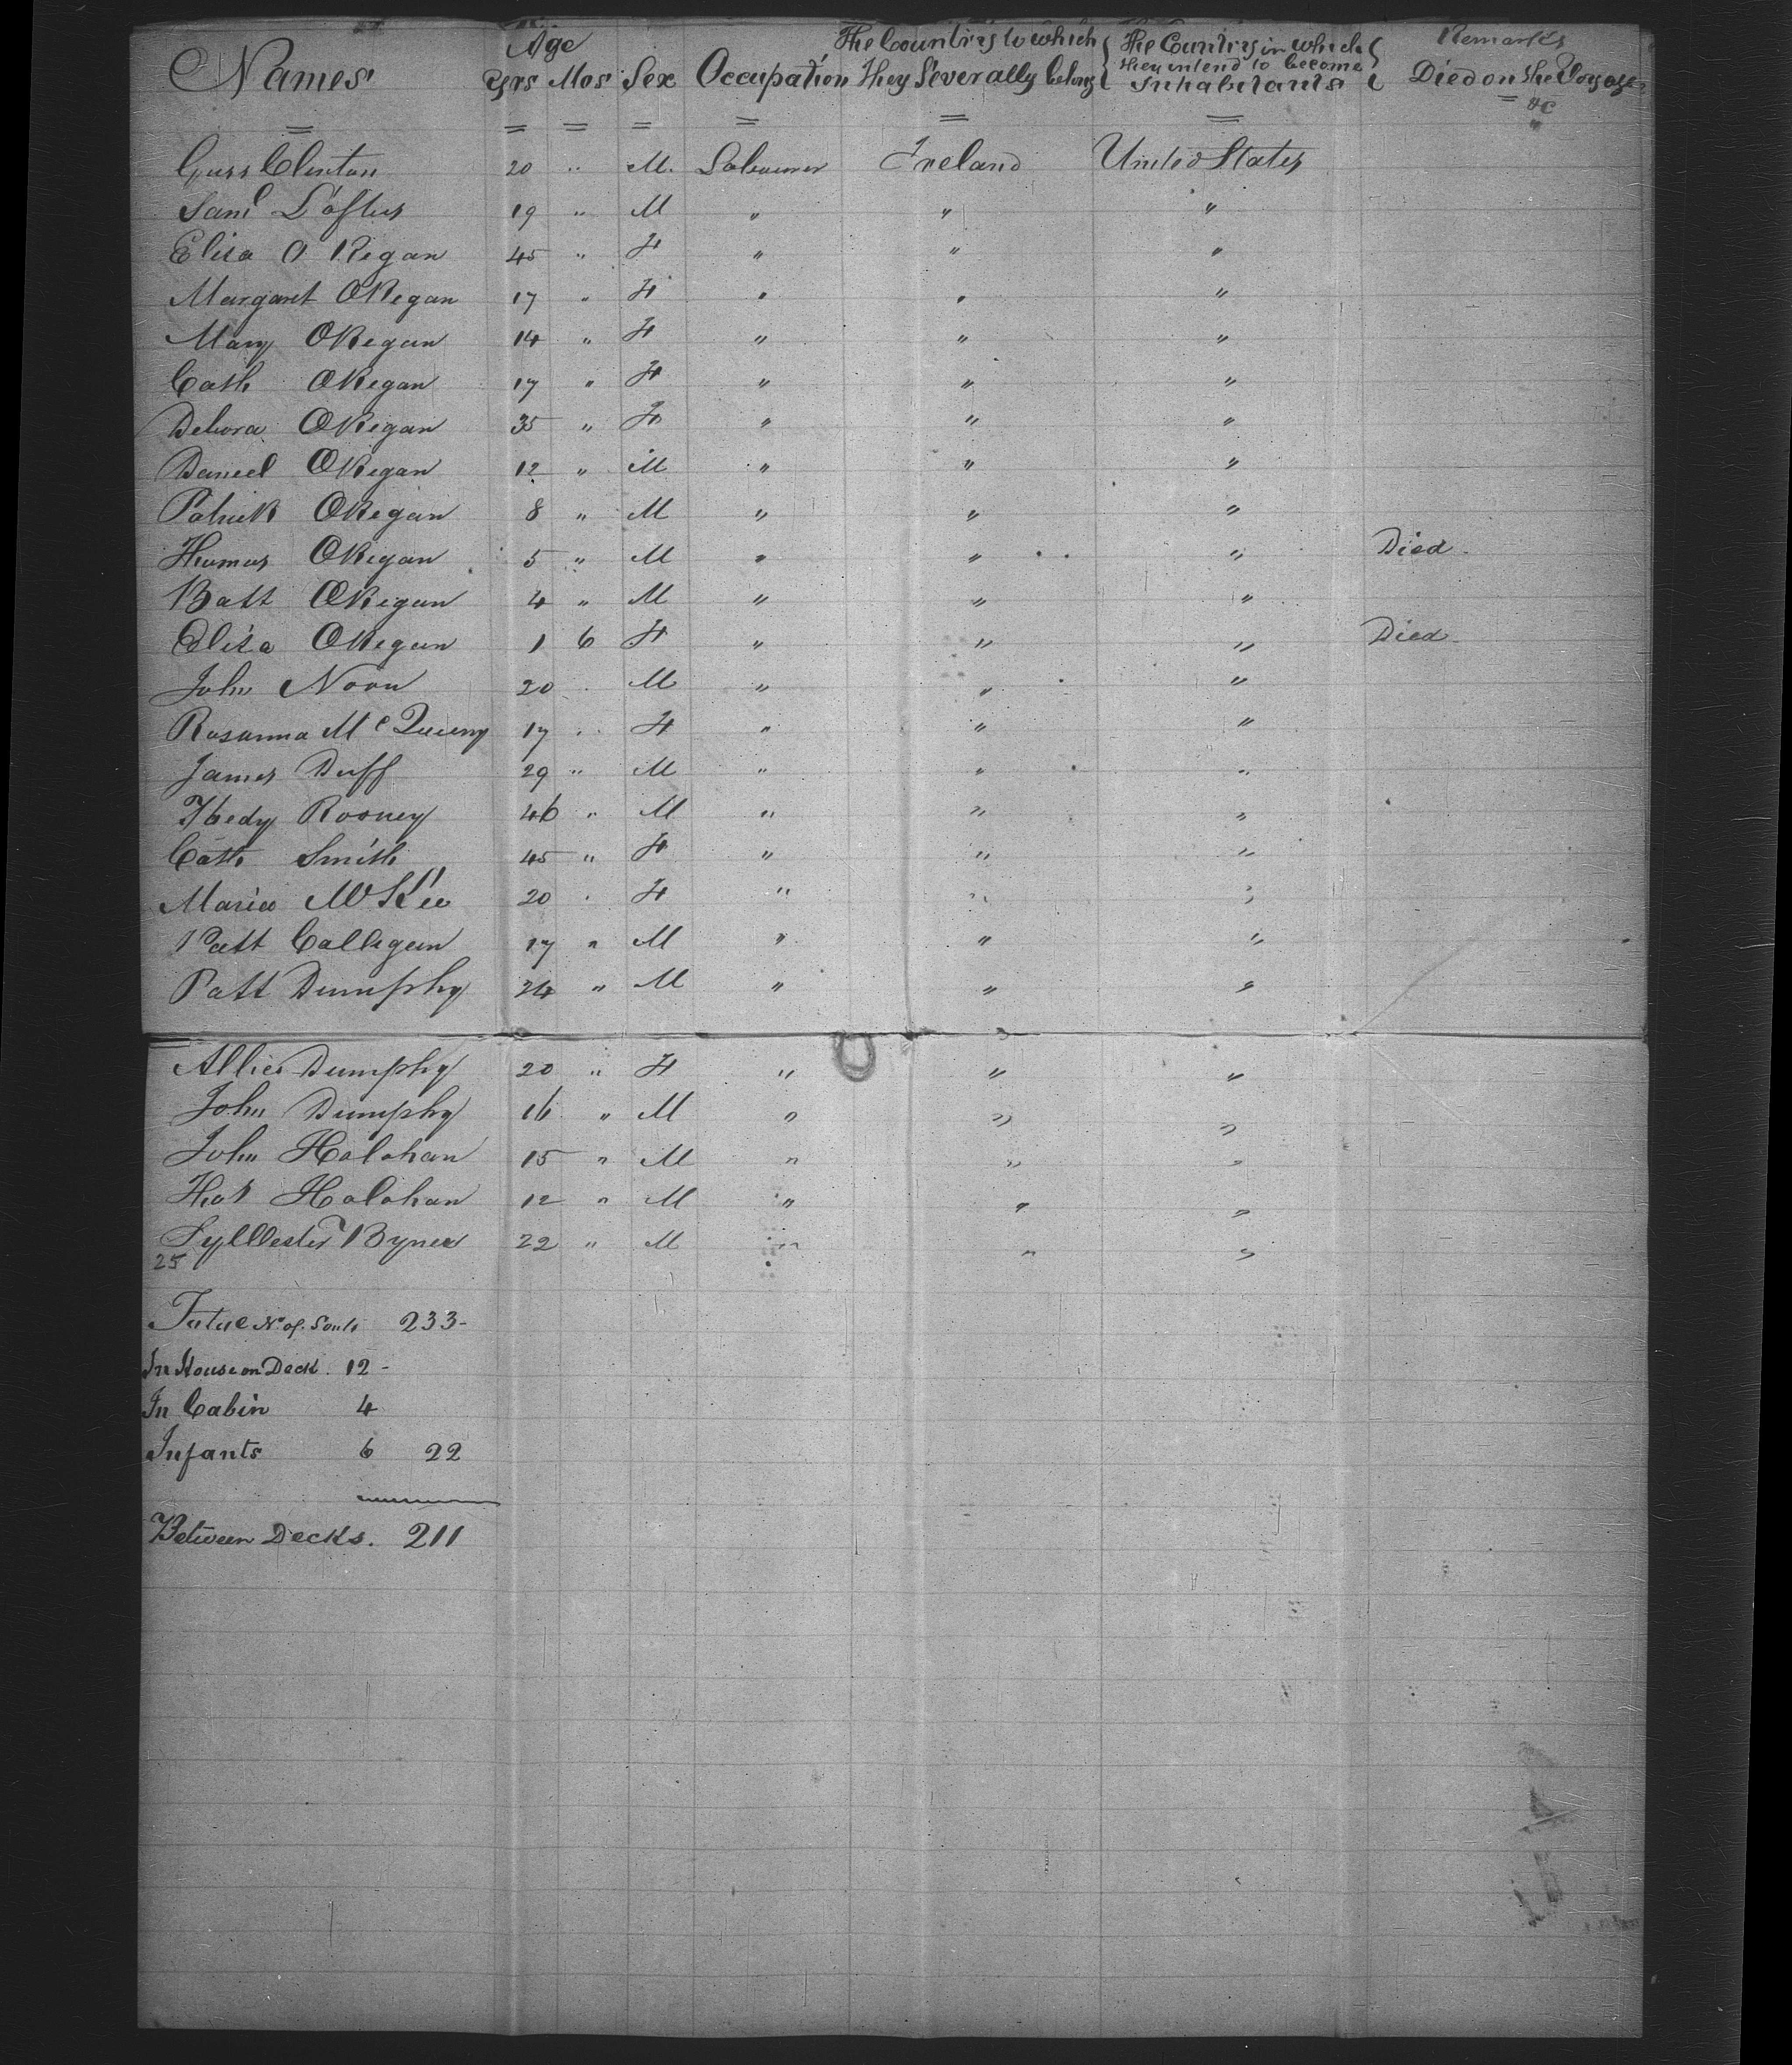 Names Age Yrs Mos Sex Occupation The Country to which They Severally belong The Country in which they intend to become Inhabitants Remarks Died on the Voyage &c
Clinton 20 " M. Labourer Ireland United States
Saml Loftus 19 " M " " "
Elisa O Regan 45 " F " " "
Margaret ORegan 17 " F " " "
Mary ORegan 14 " F " " "
Cath ORegan 17 " F " " "
Debora ORegan 35 " F " " "
Daniel ORegan 12 " M " " "
Patrick ORegan 8 " M " " "
Thomas ORegan 5 " M " " " Died
Batt ORegan 4 " M " " "
Elisa ORegan 1 6 F " " " Died
John Noon 20 " M " " "
Rosanna Mc 17 " F " " "
James Duff 29 " M " " "
Thedy Rooney 46 " M " " "
Cath Smith 45 " F " " "
Maria McKee 20 " F " " "
Patt Calligan 17 " M " " "
Patt Dumphy 24 " M " " "
Allies Dumphy 20 " F " " "
John Dumphy 16 " M " " "
John Holohan 15 " M " " "
Thos Holohan 12 " M " " "
Syllvester 22 " M " " "
25
No of Souls 233-
In House on Deck. 12-
In Cabin 4
Infants 6 22
Between Decks. 211